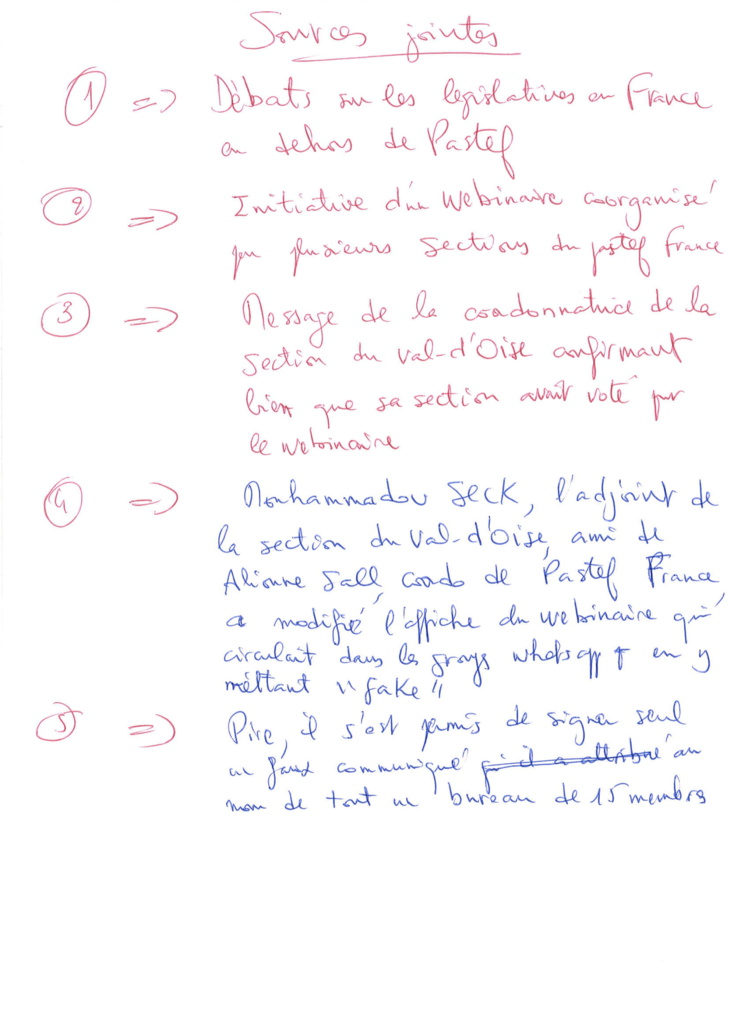 Sources jointes
① => Débats sur les législatives en France
en dehors de Pastef
② => Initiative d'un webinaire coorganisé
par plusieurs sections du pastef France
③ => Message de la coordonnatrice de la
section du val-d'Oise confirmant
bien que sa section avait voté pour
le webinaire
④ => Mouhammadou SECK, l'adjoint de
la section du Val-d'Oise, ami de
Alioune Sall, coordo de Pastef France,
a modifié l'affiche du webinaire qui
circulait dans les groups whatsapp en y
mettant "fake"
⑤ => Pire, il s'est permis de signer seul
un faux communiqué qu'il a attribué au
nom de tout un bureau de 15 membres